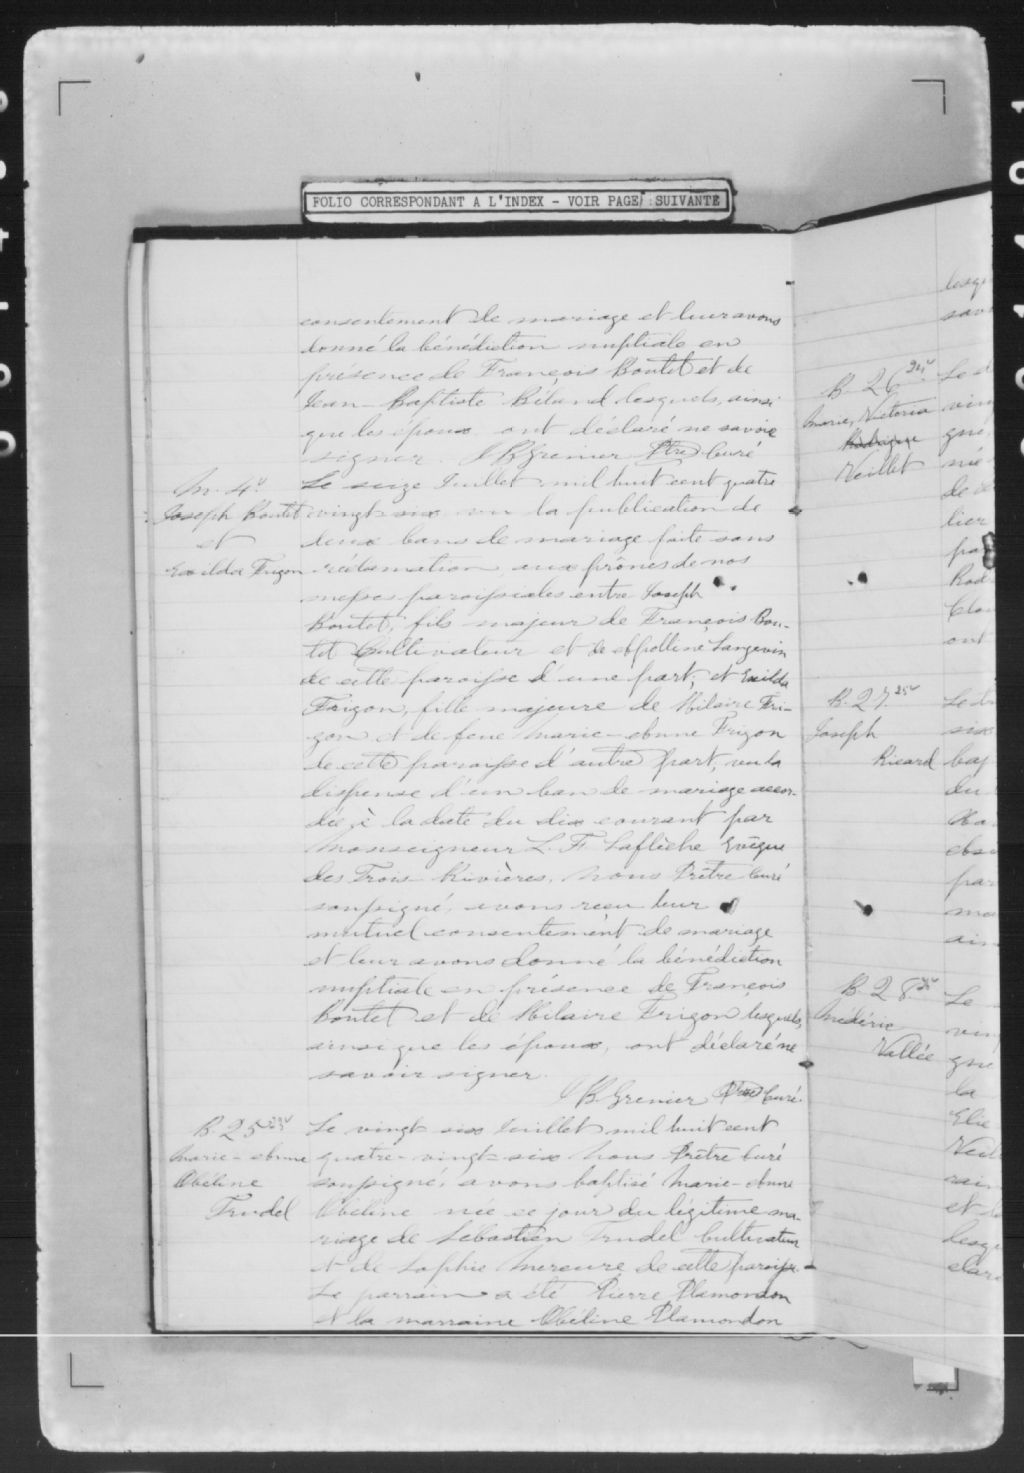 FOLIO CORRESPONDANT A L'INDEX - VOIR PAGE SUIVANTE
consentement de mariage et leur avons
donné la bénédiction nuptiale en
présence de François Boutet et de
Jean-Baptiste Béland lesquels, ainsi
que les époux ont déclaré ne savoir
signer. JBGrenier Ptre Curé
M. 4e
Joseph Boutet
et
Exilda Frigon
Le seize Juillet mil huit cent quatre
vingt-six vu la publication de
deux bans de mariage faite sans
réclamation aux prônes de nos
messes paroissiales entre Joseph
Boutet, fils majeur de François Bou-
tet Cultivateur et de Appolline Langevin
de cette paroisse d'une part, et Exilda
Frigon, fille majeure de Hilaire Fri-
gon et de feue Marie-Anne Frigon
de cette paroisse d'autre part, vu la
dispense d'un ban de mariage accor-
dée à la date du dix courant par
Monseigneur L. F. Laflèche Evêque
des Trois-Rivières, Nous Prêtre Curé
soussigné, avons reçu leur
mutuel consentement de mariage
et leur avons donné la bénédiction
nuptiale en présence de François
Boutet et de Hilaire Frigon lesquels,
ainsi que les époux, ont déclaré ne
savoir signer.
JBGrenier Ptre Curé.
B. 25
Marie-Anne
Obéline
Trudel
Le vingt six Juillet mil huit cent
quatre-vingt-six Nous Prêtre Curé
soussigné, avons baptisé Marie-Anne
Obéline née ce jour du légitime ma-
riage de Sébastien Trudel Cultivateur
et de Sophie Mercure de cette paroisse.
Le parrain a été Pierre Plamondon
et la marraine Obéline Plamondon
B. 26
Marie, Victoria
Veillet
B. 27.
Joseph
Ricard
B. 28
Médéric
Vallée